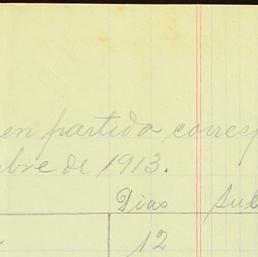 en partida corresp
bre de 1913.
Dias Suel
12